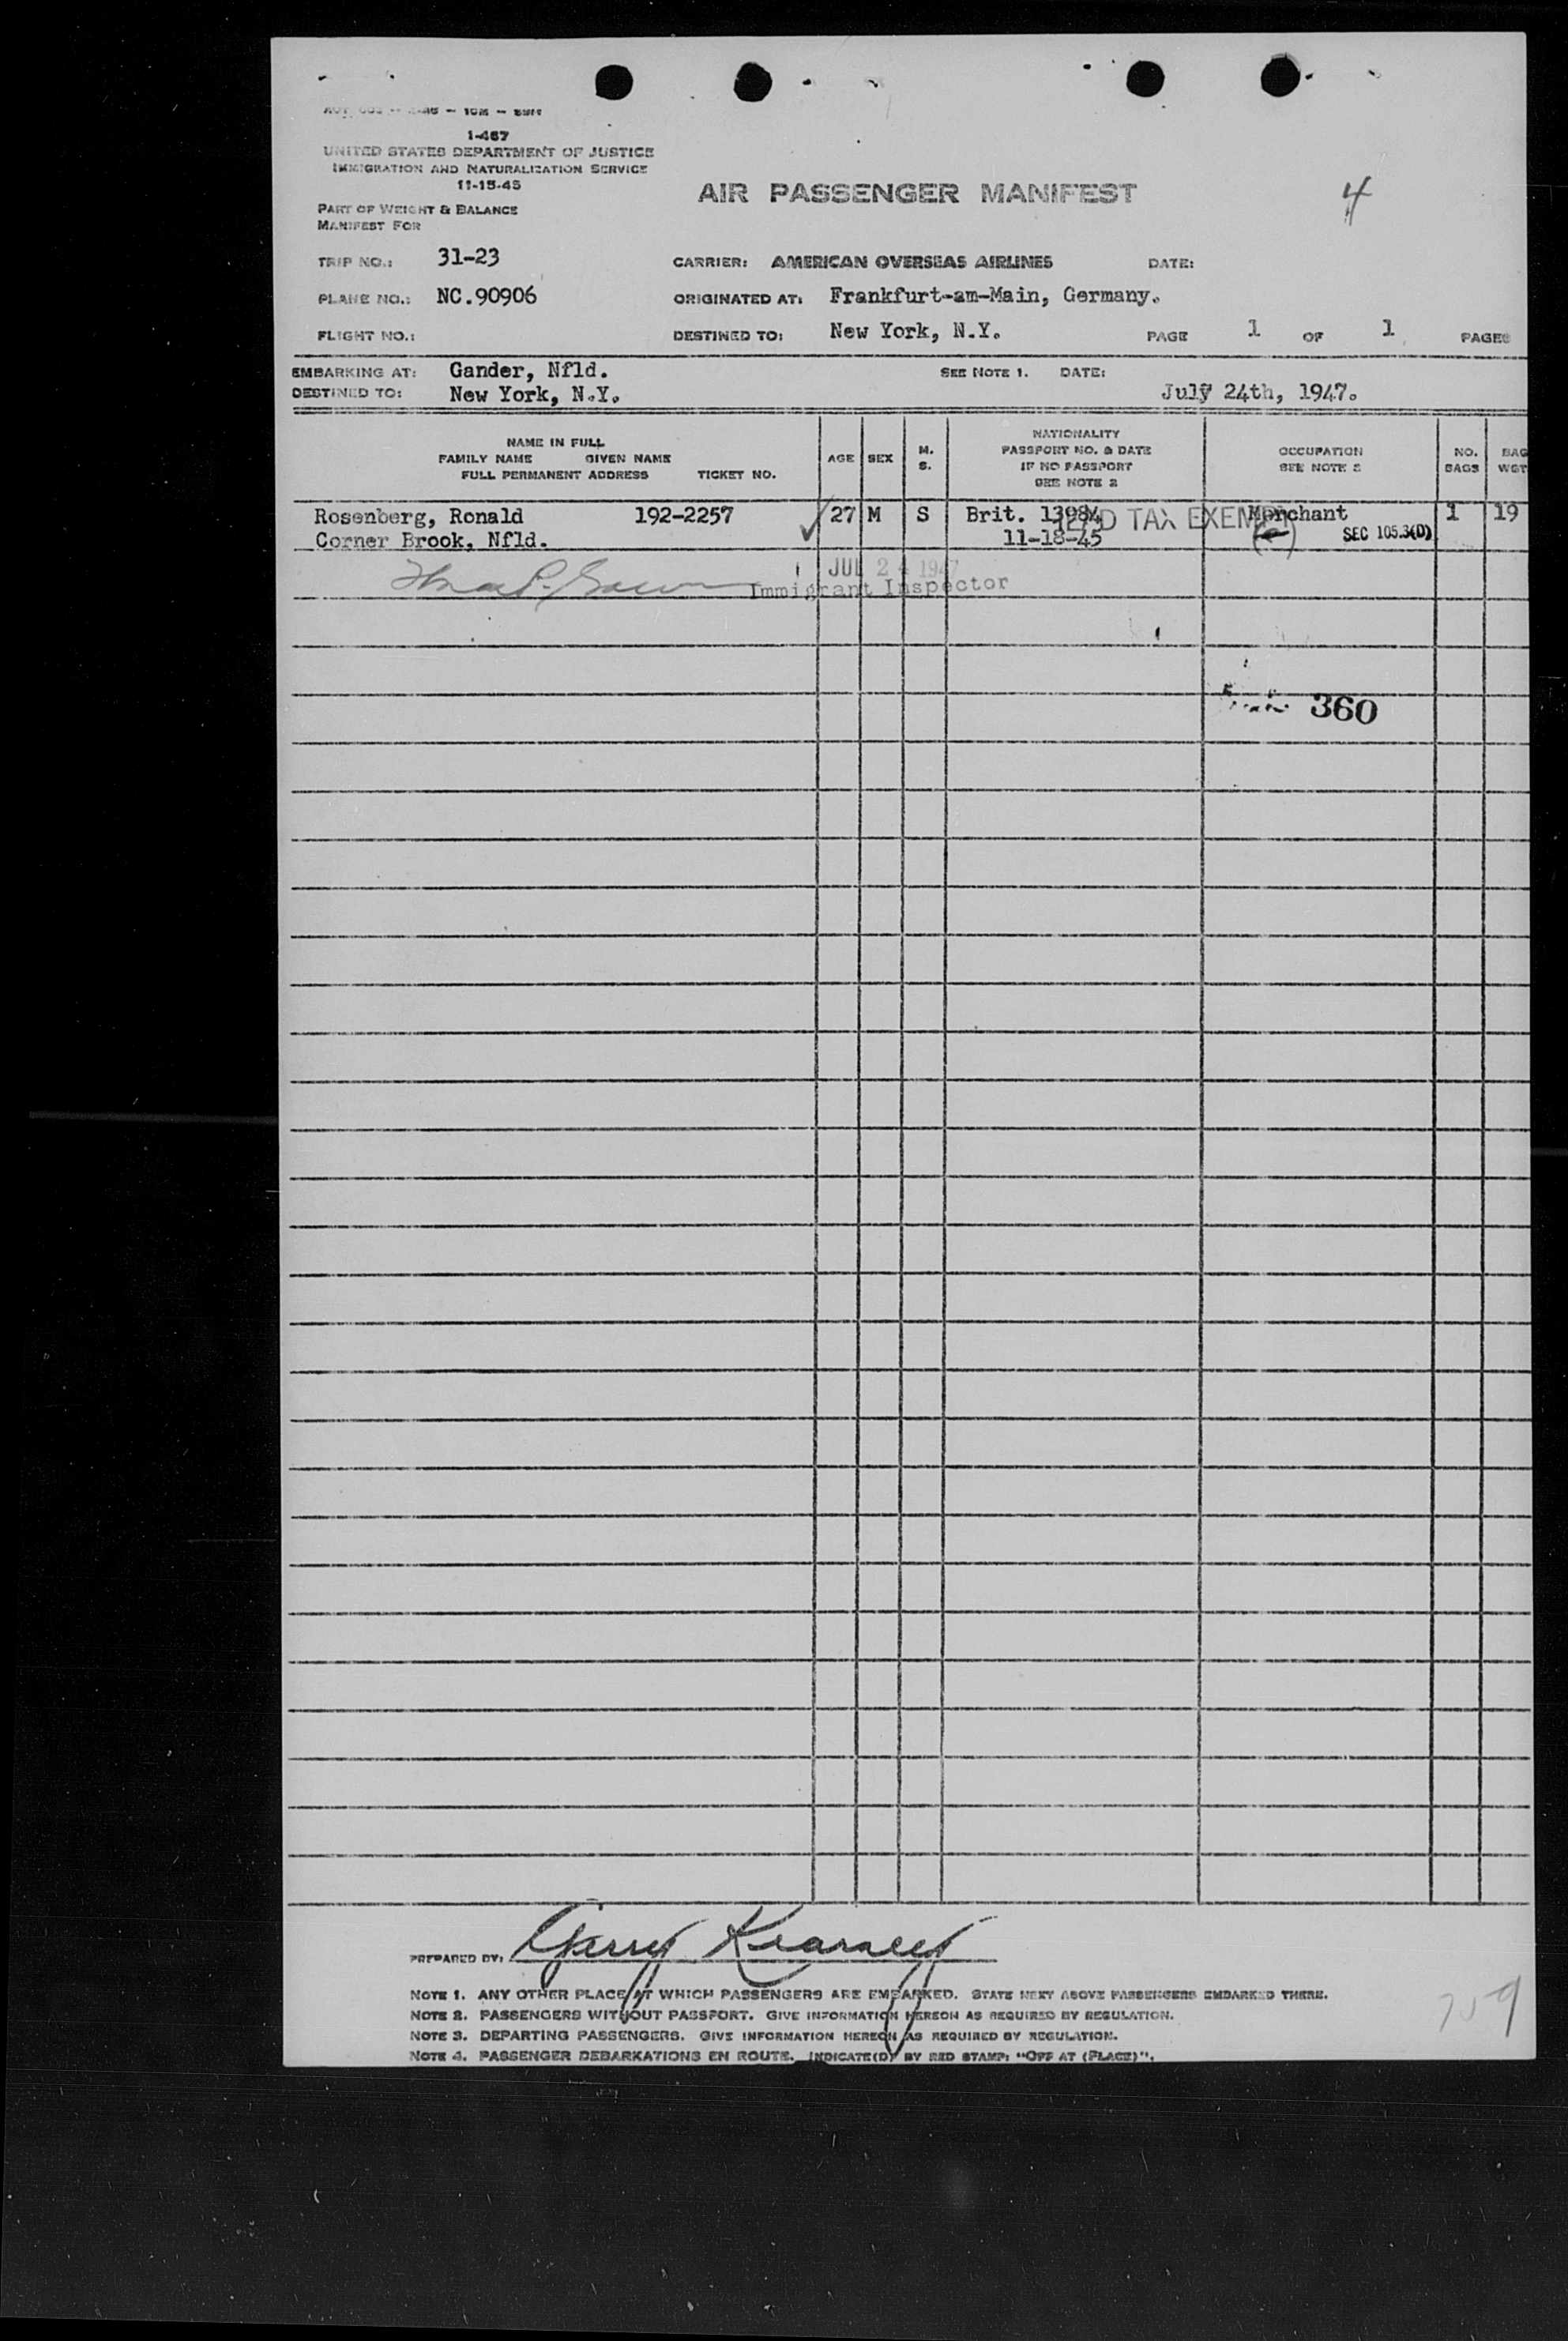 1-467
UNITED STATES DEPARTMENT OF JUSTICE
IMMIGRATION AND NATURALIZATION SERVICE
11-15-45
AIR PASSENGER MANIFEST
4
PART OF WEIGHT & BALANCE
MANIFEST FOR
TRIP NO.: 31-23 CARRIER: AMERICAN OVERSEAS AIRLINES DATE:
PLANE NO.: NC.90906 ORIGINATED AT: Frankfurt-am-Main, Germany.
FLIGHT NO.: DESTINED TO: New York, N.Y. PAGE 1 OF 1 PAGES
EMBARKING AT: Gander, Nfld. SEE NOTE 1. DATE:
DESTINED TO: New York, N.Y. July 24th, 1947.
NAME IN FULL
FAMILY NAME GIVEN NAME
FULL PERMANENT ADDRESS TICKET NO.
AGE
SEX
M.
S.
NATIONALITY
PASSPORT NO. & DATE
IF NO PASSPORT
SEE NOTE 2
OCCUPATION
SEE NOTE 3
NO.
BAGS
BAG
WGT
Rosenberg, Ronald 192-2257 27 M S Brit. 13984 Merchant 1 19
HEAD TAX EXEMPT
Corner Brook, Nfld. 11-18-45 SEC 105.3(D)
JUL 24 1947
Immigrant Inspector
360
PREPARED BY: Gerry Kearney
NOTE 1. ANY OTHER PLACE AT WHICH PASSENGERS ARE EMBARKED. STATE NEXT ABOVE PASSENGERS EMBARKED THERE.
NOTE 2. PASSENGERS WITHOUT PASSPORT. GIVE INFORMATION HEREON AS REQUIRED BY REGULATION.
NOTE 3. DEPARTING PASSENGERS. GIVE INFORMATION HEREON AS REQUIRED BY REGULATION.
NOTE 4. PASSENGER DEBARKATIONS EN ROUTE. INDICATE(D) BY RED STAMP: "OFF AT (PLACE)".